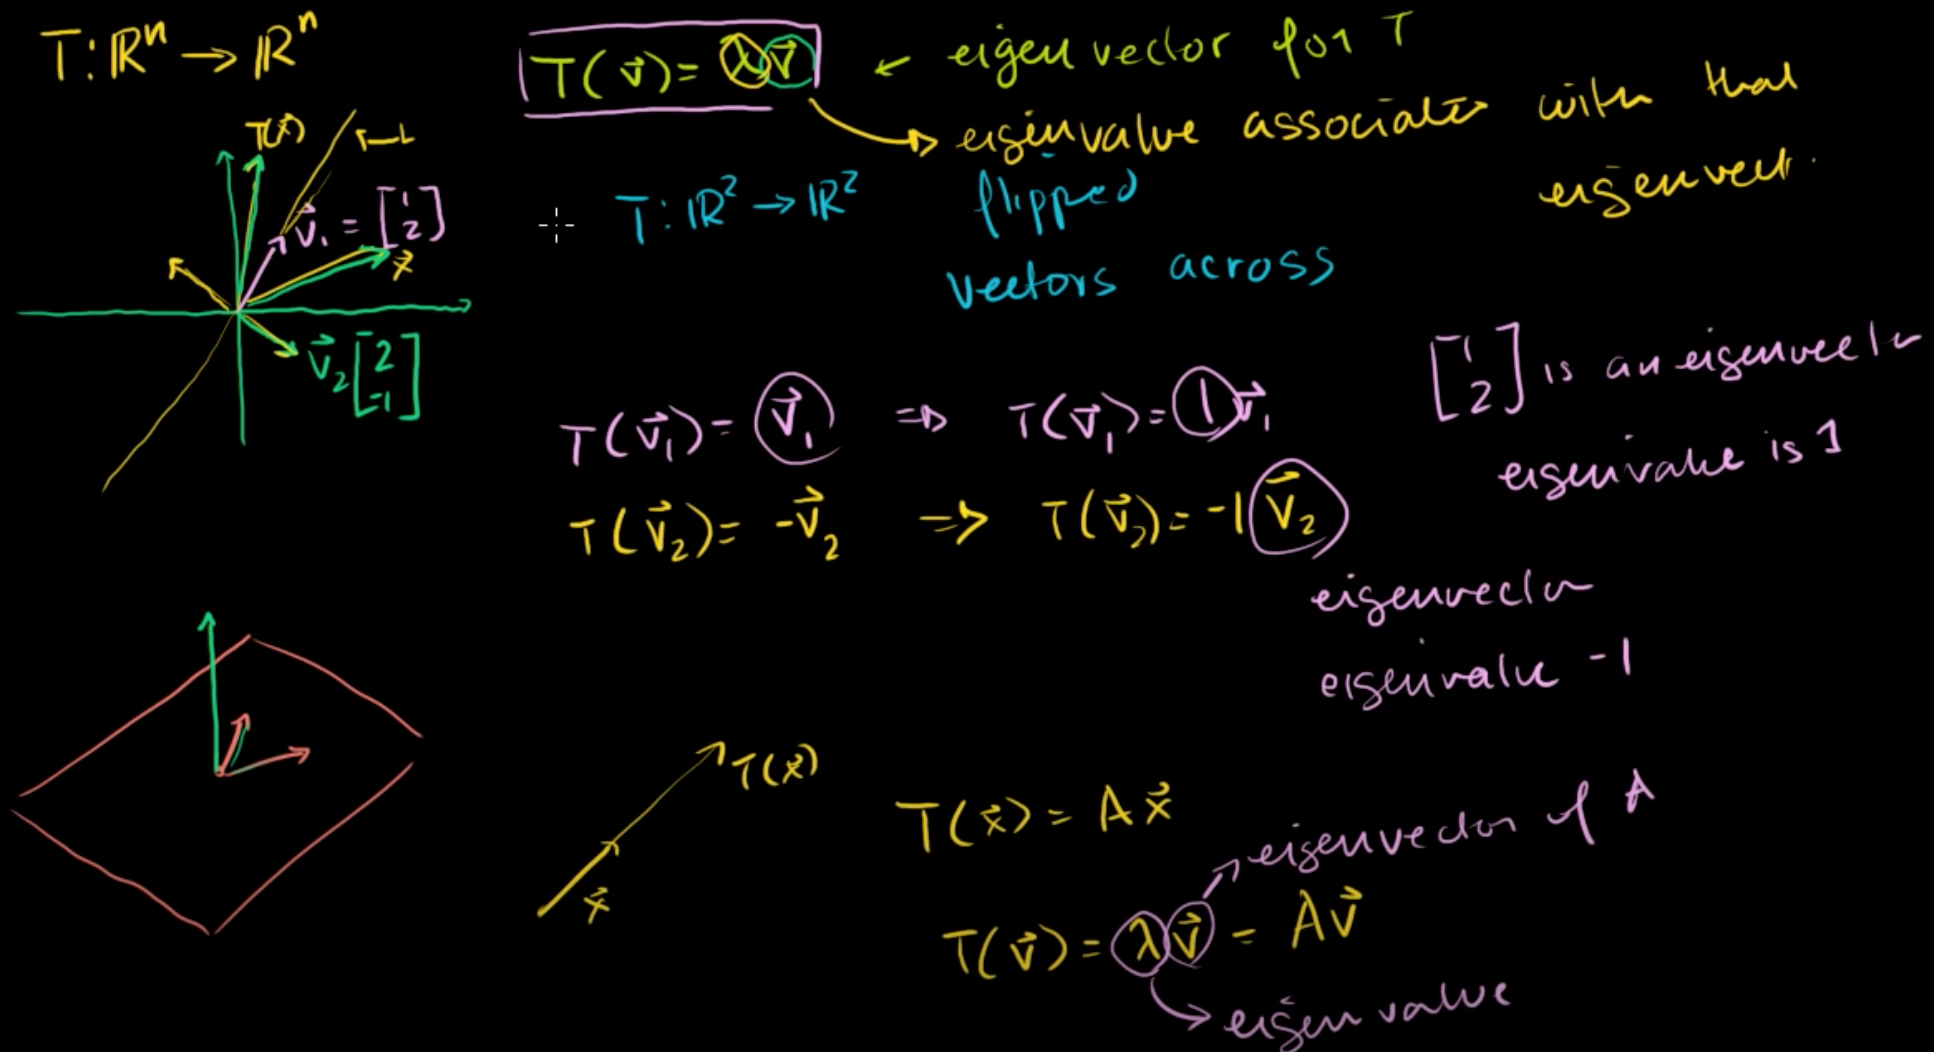 T: ℝⁿ → ℝⁿ
T(v⃗) = λv⃗ ← eigen vector for T
→ eigenvalue associated with that
eigenvect.
T: ℝ² → ℝ² flipped
vectors across
T(x⃗)
← L
v⃗₁ = [1 2]
x⃗
v⃗₂ [2 -1]
T(v⃗₁) = v⃗₁ ⇒ T(v⃗₁) = 1v⃗₁
[1 2] is an eigenvector
eigenvalue is 1
T(v⃗₂) = -v⃗₂ ⇒ T(v⃗₂) = -1v⃗₂
eigenvector
eigenvalue -1
x⃗
T(x⃗)
T(x⃗) = Ax⃗
→ eigenvector of A
T(v⃗) = λv⃗ = Av⃗
→ eigen value